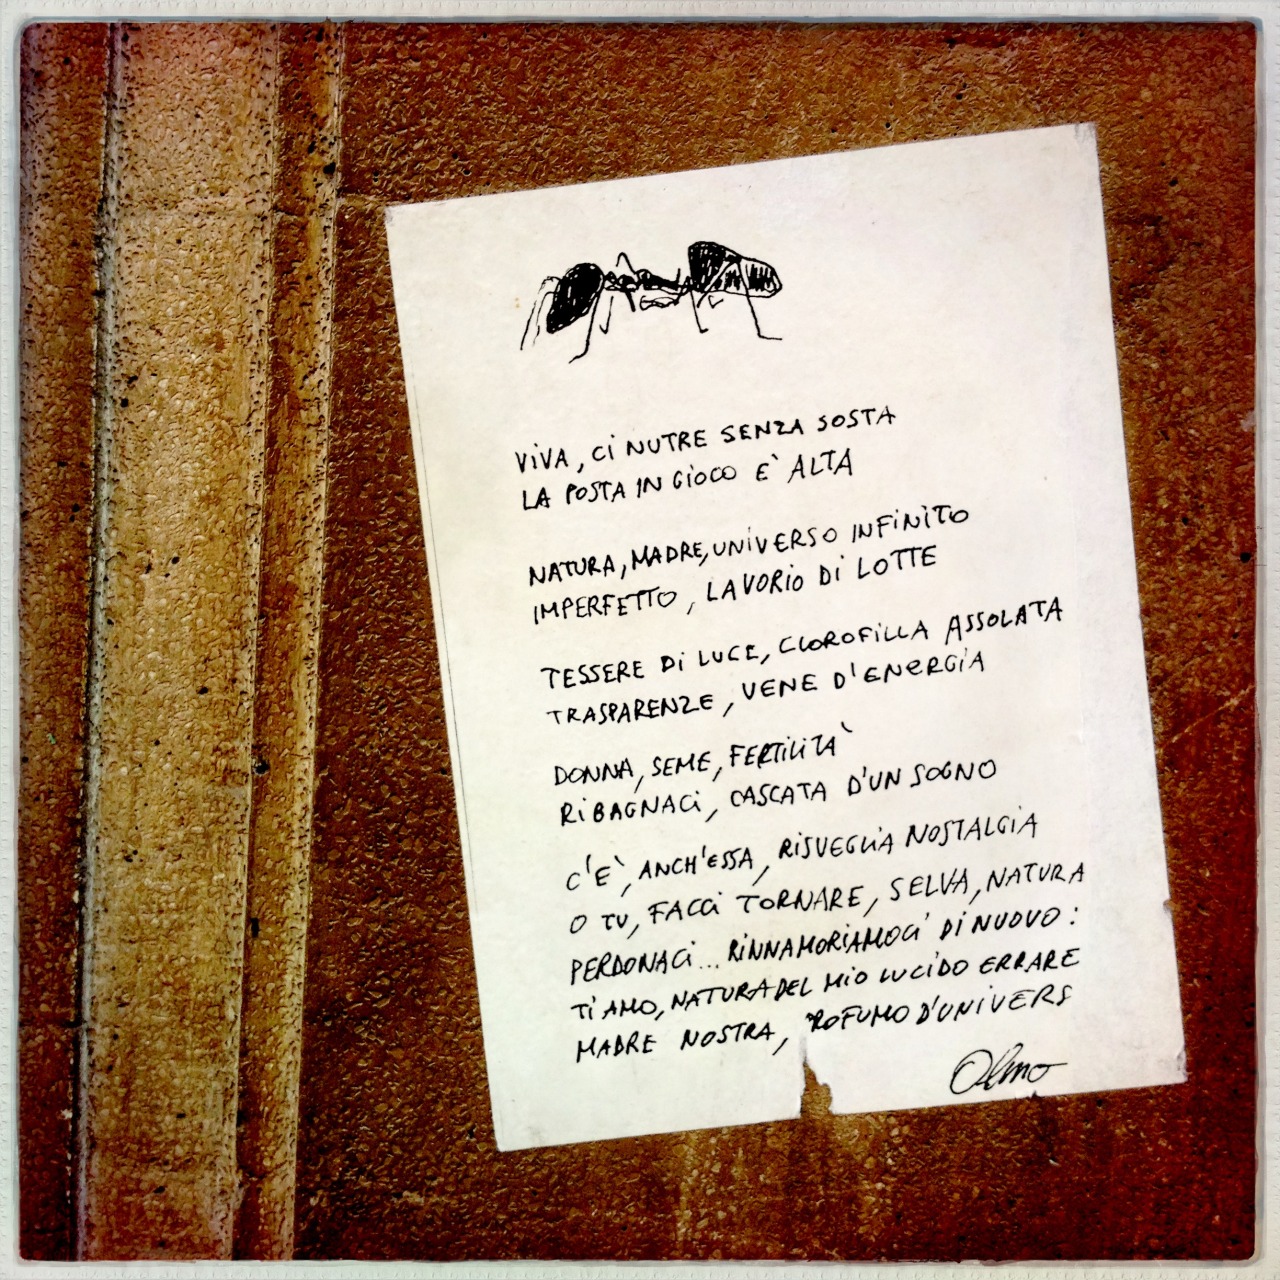 VIVA, CI NUTRE SENZA SOSTA
LA POSTA IN GIOCO E' ALTA
NATURA, MADRE, UNIVERSO INFINITO
IMPERFETTO, LAVORIO DI LOTTE
TESSERE DI LUCE, CLOROFILLA ASSOLATA
TRASPARENZE, VENE D'ENERGIA
DONNA, SEME, FERTILITA'
RIBAGNACI, CASCATA D'UN SOGNO
C'E', ANCH'ESSA, RISVEGLIA NOSTALGIA
O TU, FACCI TORNARE, SELVA, NATURA
PERDONACI... RINNAMORIAMOCI DI NUOVO:
TI AMO, NATURA DEL MIO LUCIDO ERRARE
MADRE NOSTRA, PROFUMO D'UNIVERS
Olmo